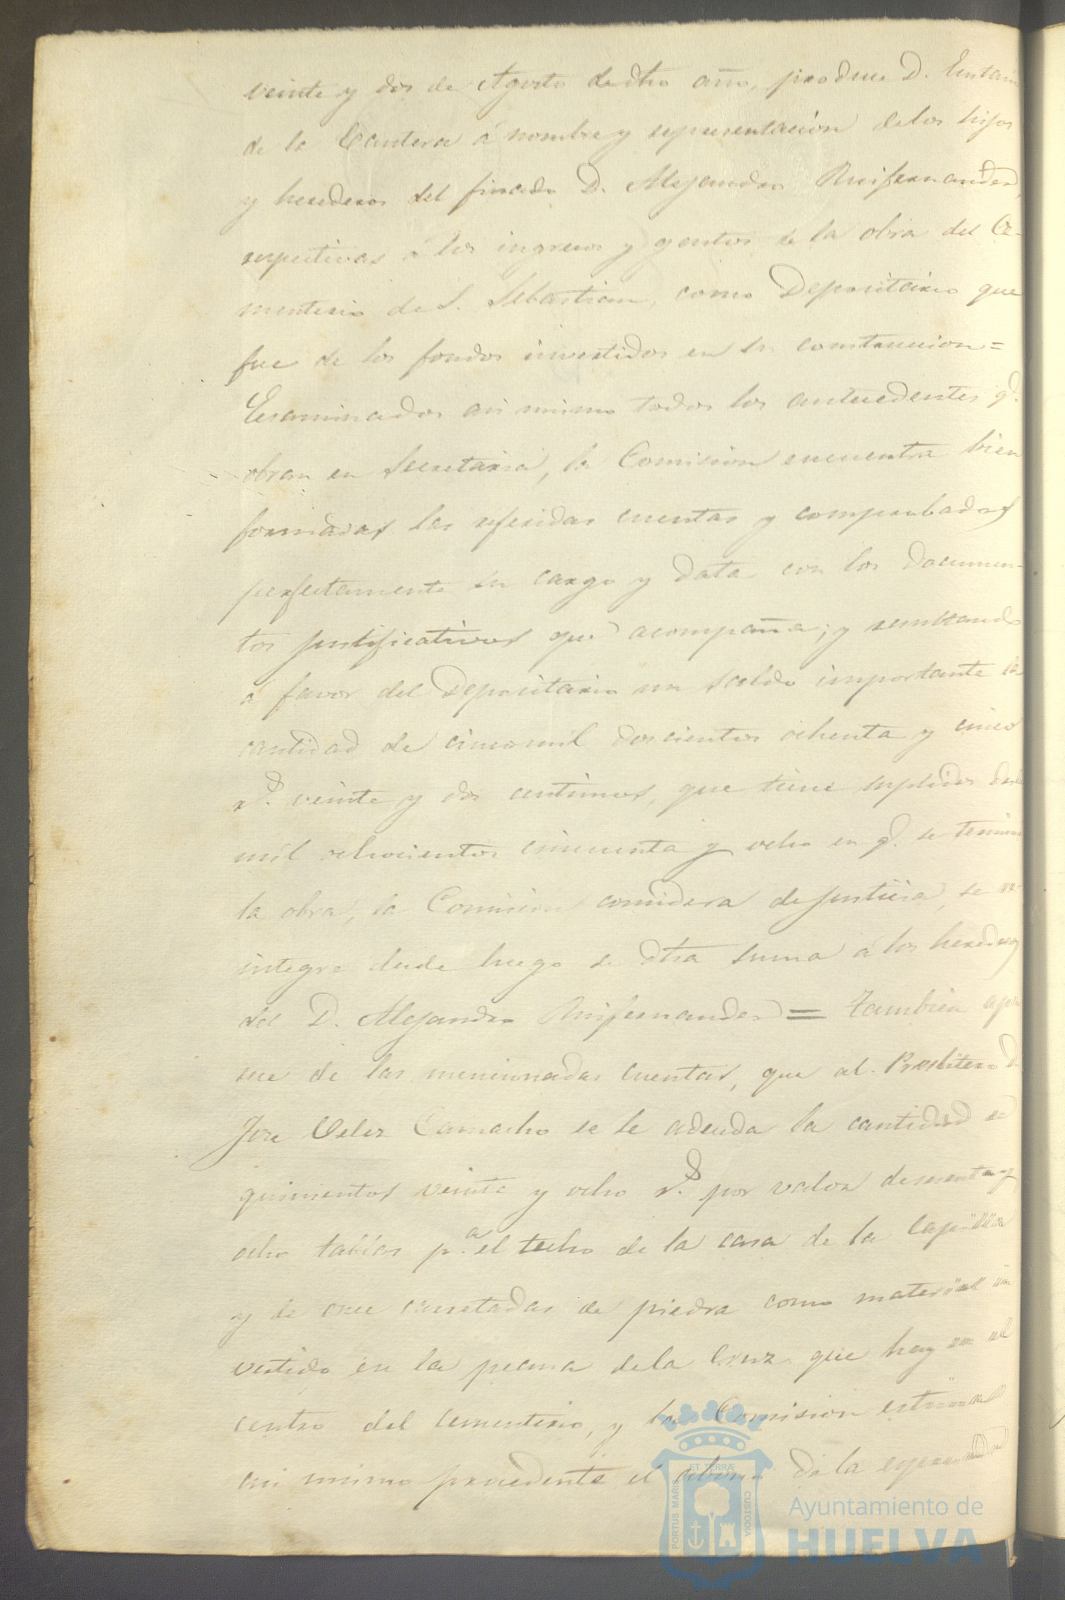 veinte y dos de Agosto de dho año, produce D.
de la Cantera á nombre y representacion delos hijos
y herederos del finado D. Alejandro Ruifernandez,
respectivas á los ingresos y gastos de la obra del Ce-
menterio de S. Sebastian, como Depositario que
fue de los fondos invertidos en su construccion=
Ecsaminados asi mismo todos los antecedentes q.
obran en Secretaria, la Comision encuentra bien
formadas las referidas cuentas y comprobados
perfectamente su cargo y data con los documen-
tos justificativos que acompaña; y resultando
á favor del Depositario un saldo importante la
cantidad de cincomil doscientos ochenta y cinco
r.s veinte y dos centimos, que tiene suplidos desde
mil ochocientos cincuenta y ocho en q. se termino
la obra, la Comision considera de justicia, se re
integre desde luego de dha suma á los herederos
del D. Alejandro Ruifernandez = Tambien apa
rece de las mencionadas cuentas, que al Presbitero D.
Jose Velez Camacho se le adeuda la cantidad de
quinientos veinte y ocho r.s por valor de sesenta y
ocho tablas p.a el techo de la casa de la Capilla
y de once carretadas de piedra como material in
vertido en la peana dela Cruz que hay en el
centro del cementerio, y la Comision estima
asi mismo procedente el abono de la espresada
ET TERRÆ
PORTUS MARIS
CUSTODIA
Ayuntamiento de
HUELVA